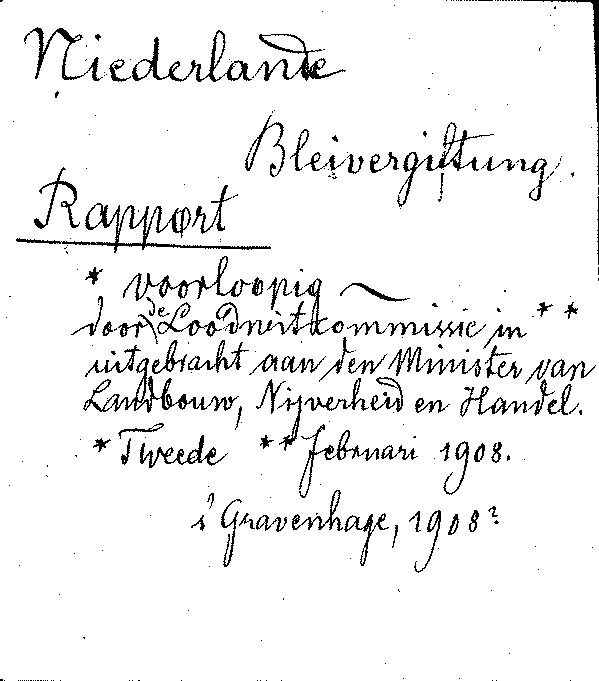 Niederlande
Bleivergiftung.
Rapport
* voorloopig ~
door de Loodwitcommissie in **
uitgebracht aan den Minister van
Landbouw, Nijverheid en Handel.
* Tweede ** Februari 1908.
s' Gravenhage, 1908?